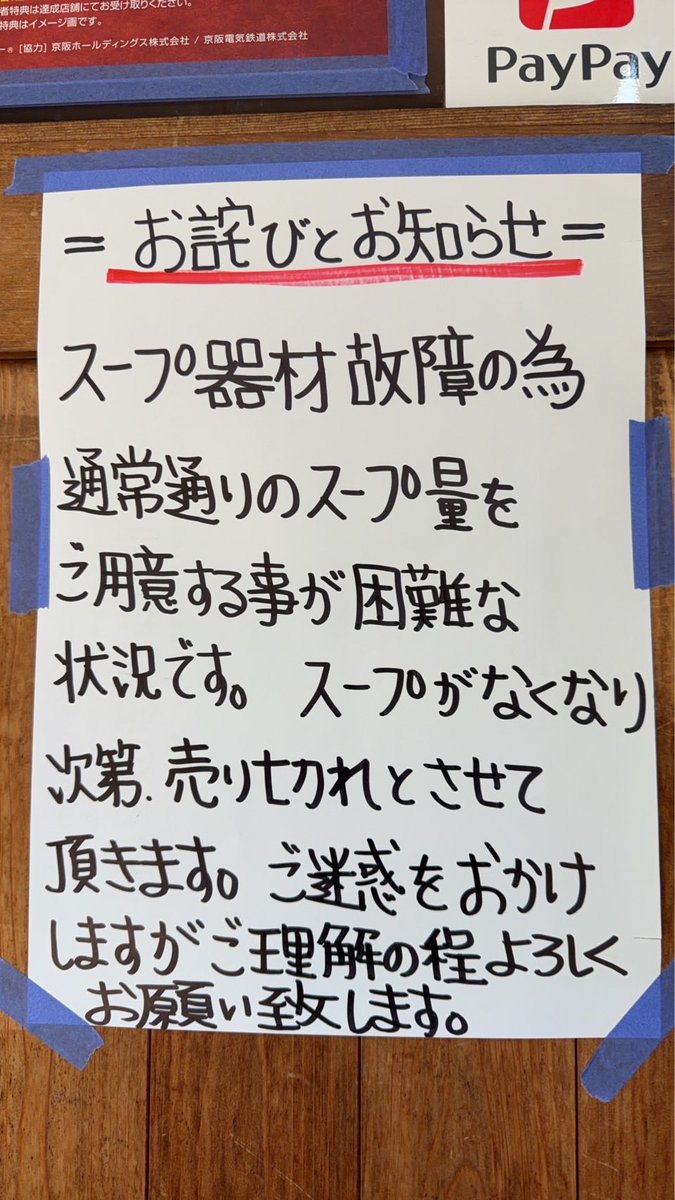 者特典は達成店舗にてお受け取りください。
特典はイメージ画です。
ー® [協力] 京阪ホールディングス株式会社 / 京阪電気鉄道株式会社
PayPay
= お詫びとお知らせ =
スープ器材故障の為
通常通りのスープ量を
ご用意する事が困難な
状況です。 スープがなくなり
次第、売り切れとさせて
頂きます。ご迷惑をおかけ
しますがご理解の程よろしく
お願い致します。